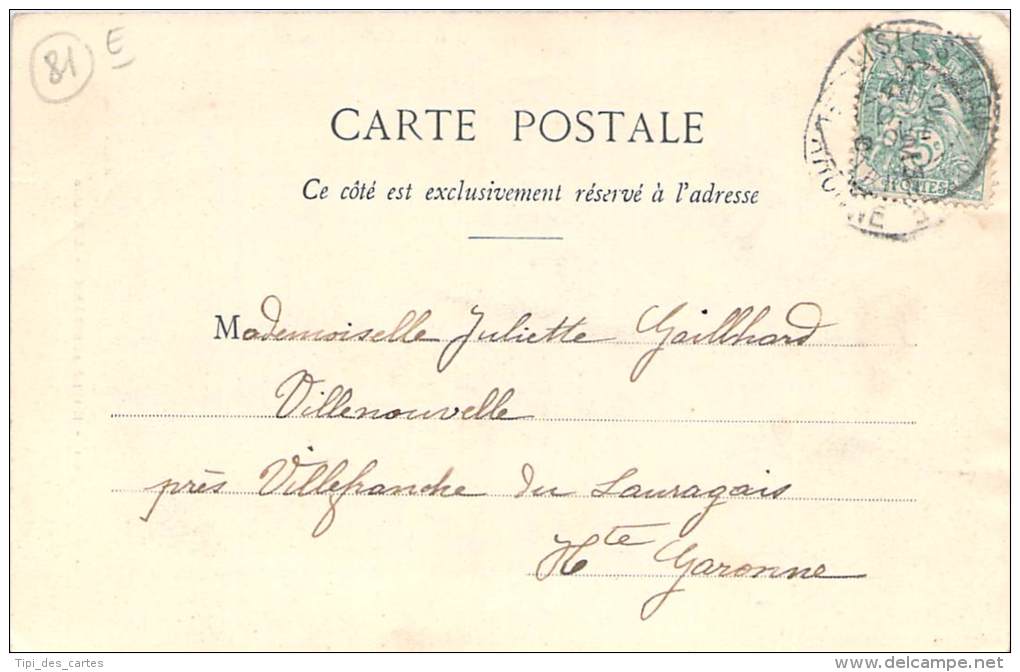 81 E
CARTE POSTALE
Ce côté est exclusivement réservé à l'adresse
5c
POSTES
Mademoiselle Juliette Gaillhard
Villenouvelle
près Villefranche du Lauragais
Hte Garonne
Tipi_des_cartes
www.delcampe.net